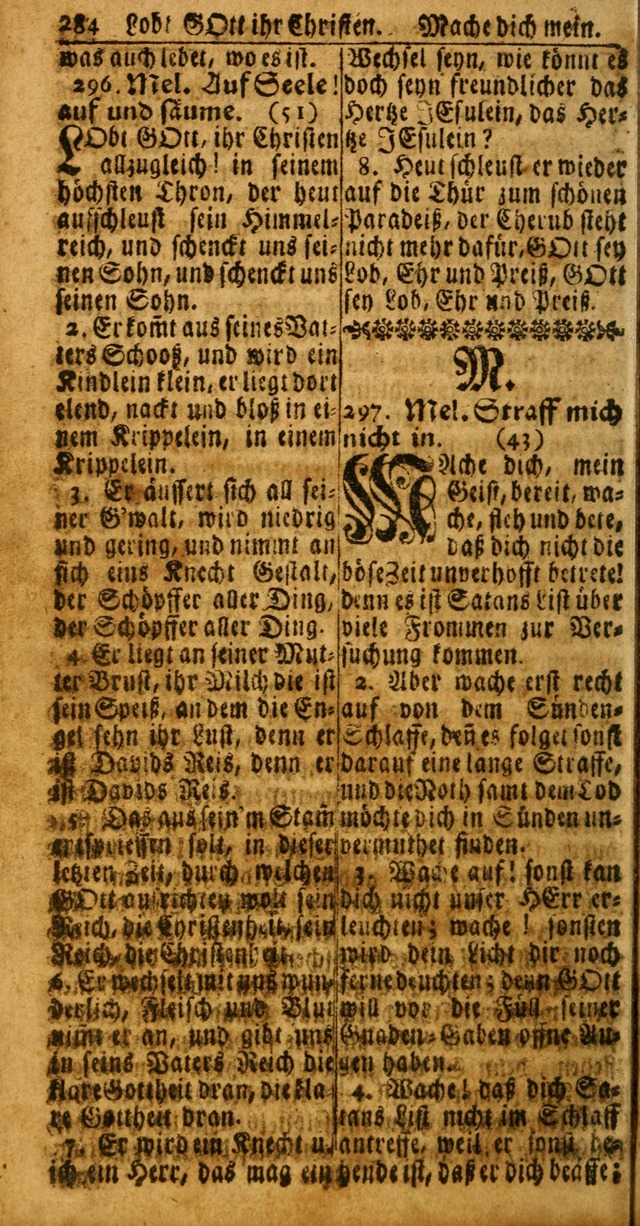 284 Lobt GOtt ihr Christen. Mache dich mein.
was auch lebet, wo es ist.
296. Mel. Auf Seele!
auf und säume. (51)
LObt GOtt, ihr Christen
allzugleich! in seinem
höchsten Thron, der heut
aufschleust sein Himmel-
reich, und schenckt uns sei-
nen Sohn, und schenckt uns
seinen Sohn.
2. Er kom̃t aus seines Vat-
ters Schooß, und wird ein
Kindlein klein, er liegt dort
elend, nackt und bloß in ei-
nem Krippelein, in einem
Krippelein.
3. Er äussert sich all sei-
ner G'walt, wird niedrig
und gering, und nimmt an
sich eins Knecht Gestalt,
der Schöpffer aller Ding,
der Schöpffer aller Ding.
4 Er liegt an seiner Mut-
ter Brust, ihr Milch die ist
sein Speiß, an dem die En-
gel sehn ihr Lust, denn er
ist Davids Reis, denn er
ist Davids Reis.
5. Das aus sein'm Stam̃
entspriessen solt, in dieser
letzten Zeit, durch welchen
GOtt aufrichten wolt sein
Reich, die Christenheit, sein
Reich, die Christenheit.
6. Er wechselt mit uns wun-
derlich, Fleisch und Blut
nimt er an, und gibt uns
in seins Vaters Reich die
klare Gottheit dran, die kla-
re Gottheit dran.
7. Er wird ein Knecht u.
ich ein Herr, das mag ein
Wechsel seyn, wie könnt es
doch seyn freundlicher das
Hertze JEsulein, das Her-
tze JEsulein?
8. Heut schleust er wieder
auf die Thür zum schönen
Paradeiß, der Cherub steht
nicht mehr dafür, GOtt sey
Lob, Ehr und Preiß, GOtt
sey Lob, Ehr und Preiß.
M.
297. Mel. Straff mich
nicht in. (43)
MAche dich, mein
Geist, bereit, wa-
che, fleh und bete,
daß dich nicht die
böse Zeit unverhofft betrete!
denn es ist Satans List über
viele Frommen zur Ver-
suchung kommen.
2. Aber wache erst recht
auf von dem Sünden-
Schlaffe, deñ es folget sonst
darauf eine lange Straffe,
und die Noth samt dem Tod
möchte dich in Sünden un-
vermuthet finden.
3. Wache auf! sonst kan
dich nicht unser HErr er-
leuchten; wache! sonsten
wird dein Licht dir noch
ferne deuchten; denn GOtt
will vor die Füll seiner
Gnaden-Gaben offne Au-
gen haben.
4. Wache! daß dich Sa-
tans List nicht im Schlaff
antreffe, weil er sonst be-
hende ist, daß er dich beäffe;